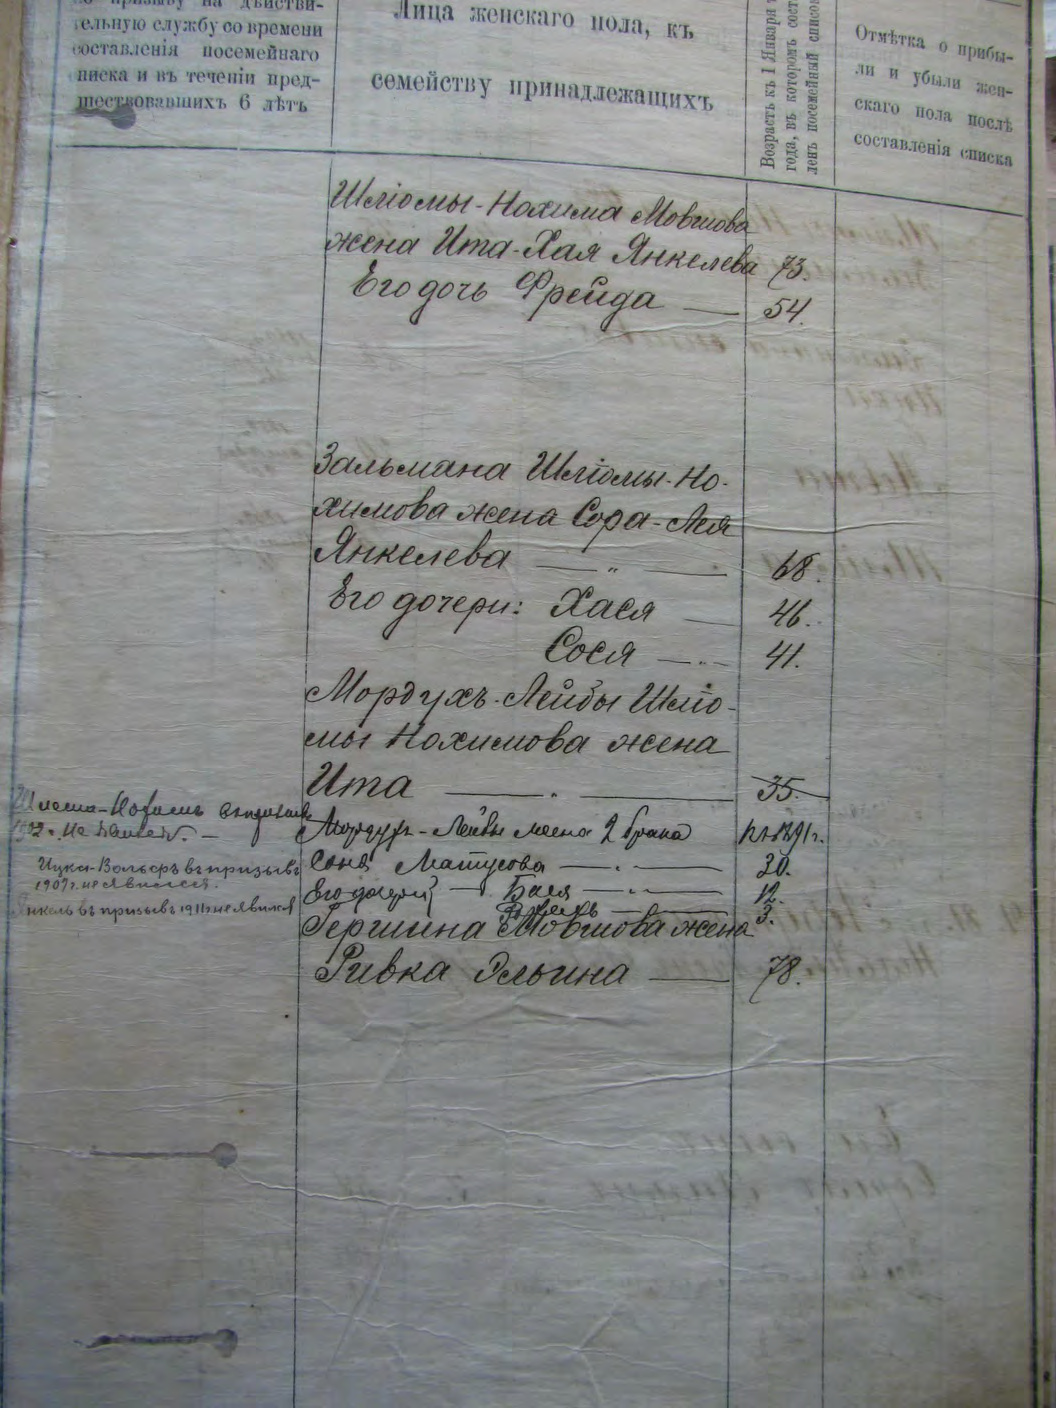 по призыву на дѣйстви-
тельную службу со времени
составленія посемейнаго
списка и въ теченіи пред-
шествовавшихъ 6 лѣтъ
Лица женскаго пола, къ
семейству принадлежащихъ
Возрастъ къ 1 Января
года, въ которомъ сост
ленъ посемейный списо
Отмѣтка о прибы-
ли и убыли жен-
скаго пола послѣ
составленія списка
Шліомы-Нохима Мовшова
жена Ита-Хая Янкелева 73.
Его дочь Фрейда — 54.
Зальмана Шліомы-Но-
химова жена Сора-Лея
Янкелева — „ — 68.
Его дочери: Хася — 46.
Сося — „ — 41.
Мордухъ-Лейбы Шліо-
мы Нохимова жена
Ита — „ — 35.
Шлема-Нохимъ
Мордухъ-Лейбы жена 2 брака
Соня Матусова — „ — 30.
Ицка-Вольфъ въ призывъ
1907 г. не явился.
Его дочери — Бася — „ — 12.
— 3.
Янкель въ призывъ 1911 г. не явился
Гершина Мовшова жена
Ривка Эльина — 78.